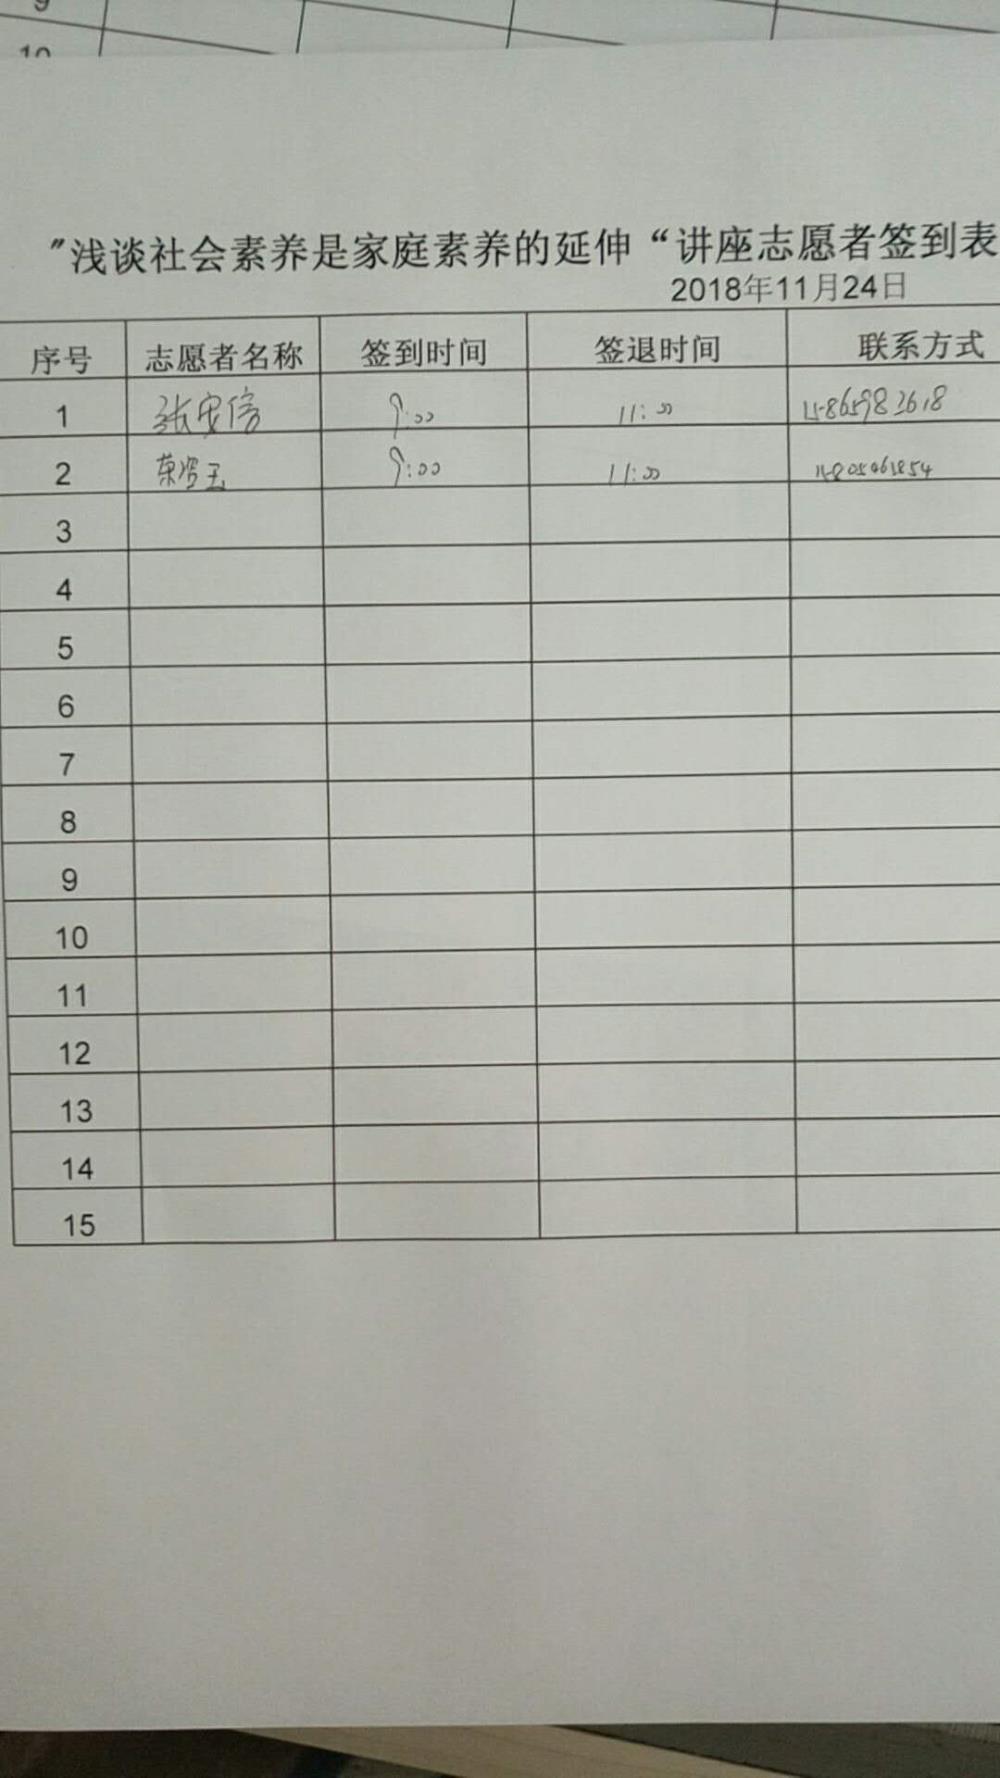 9
10
"浅谈社会素养是家庭素养的延伸“讲座志愿者签到表
2018年11月24日
序号 志愿者名称 签到时间 签退时间 联系方式
1 张安信 9:00 11:00
2 9:00 11:00
3
4
5
6
7
8
9
10
11
12
13
14
15